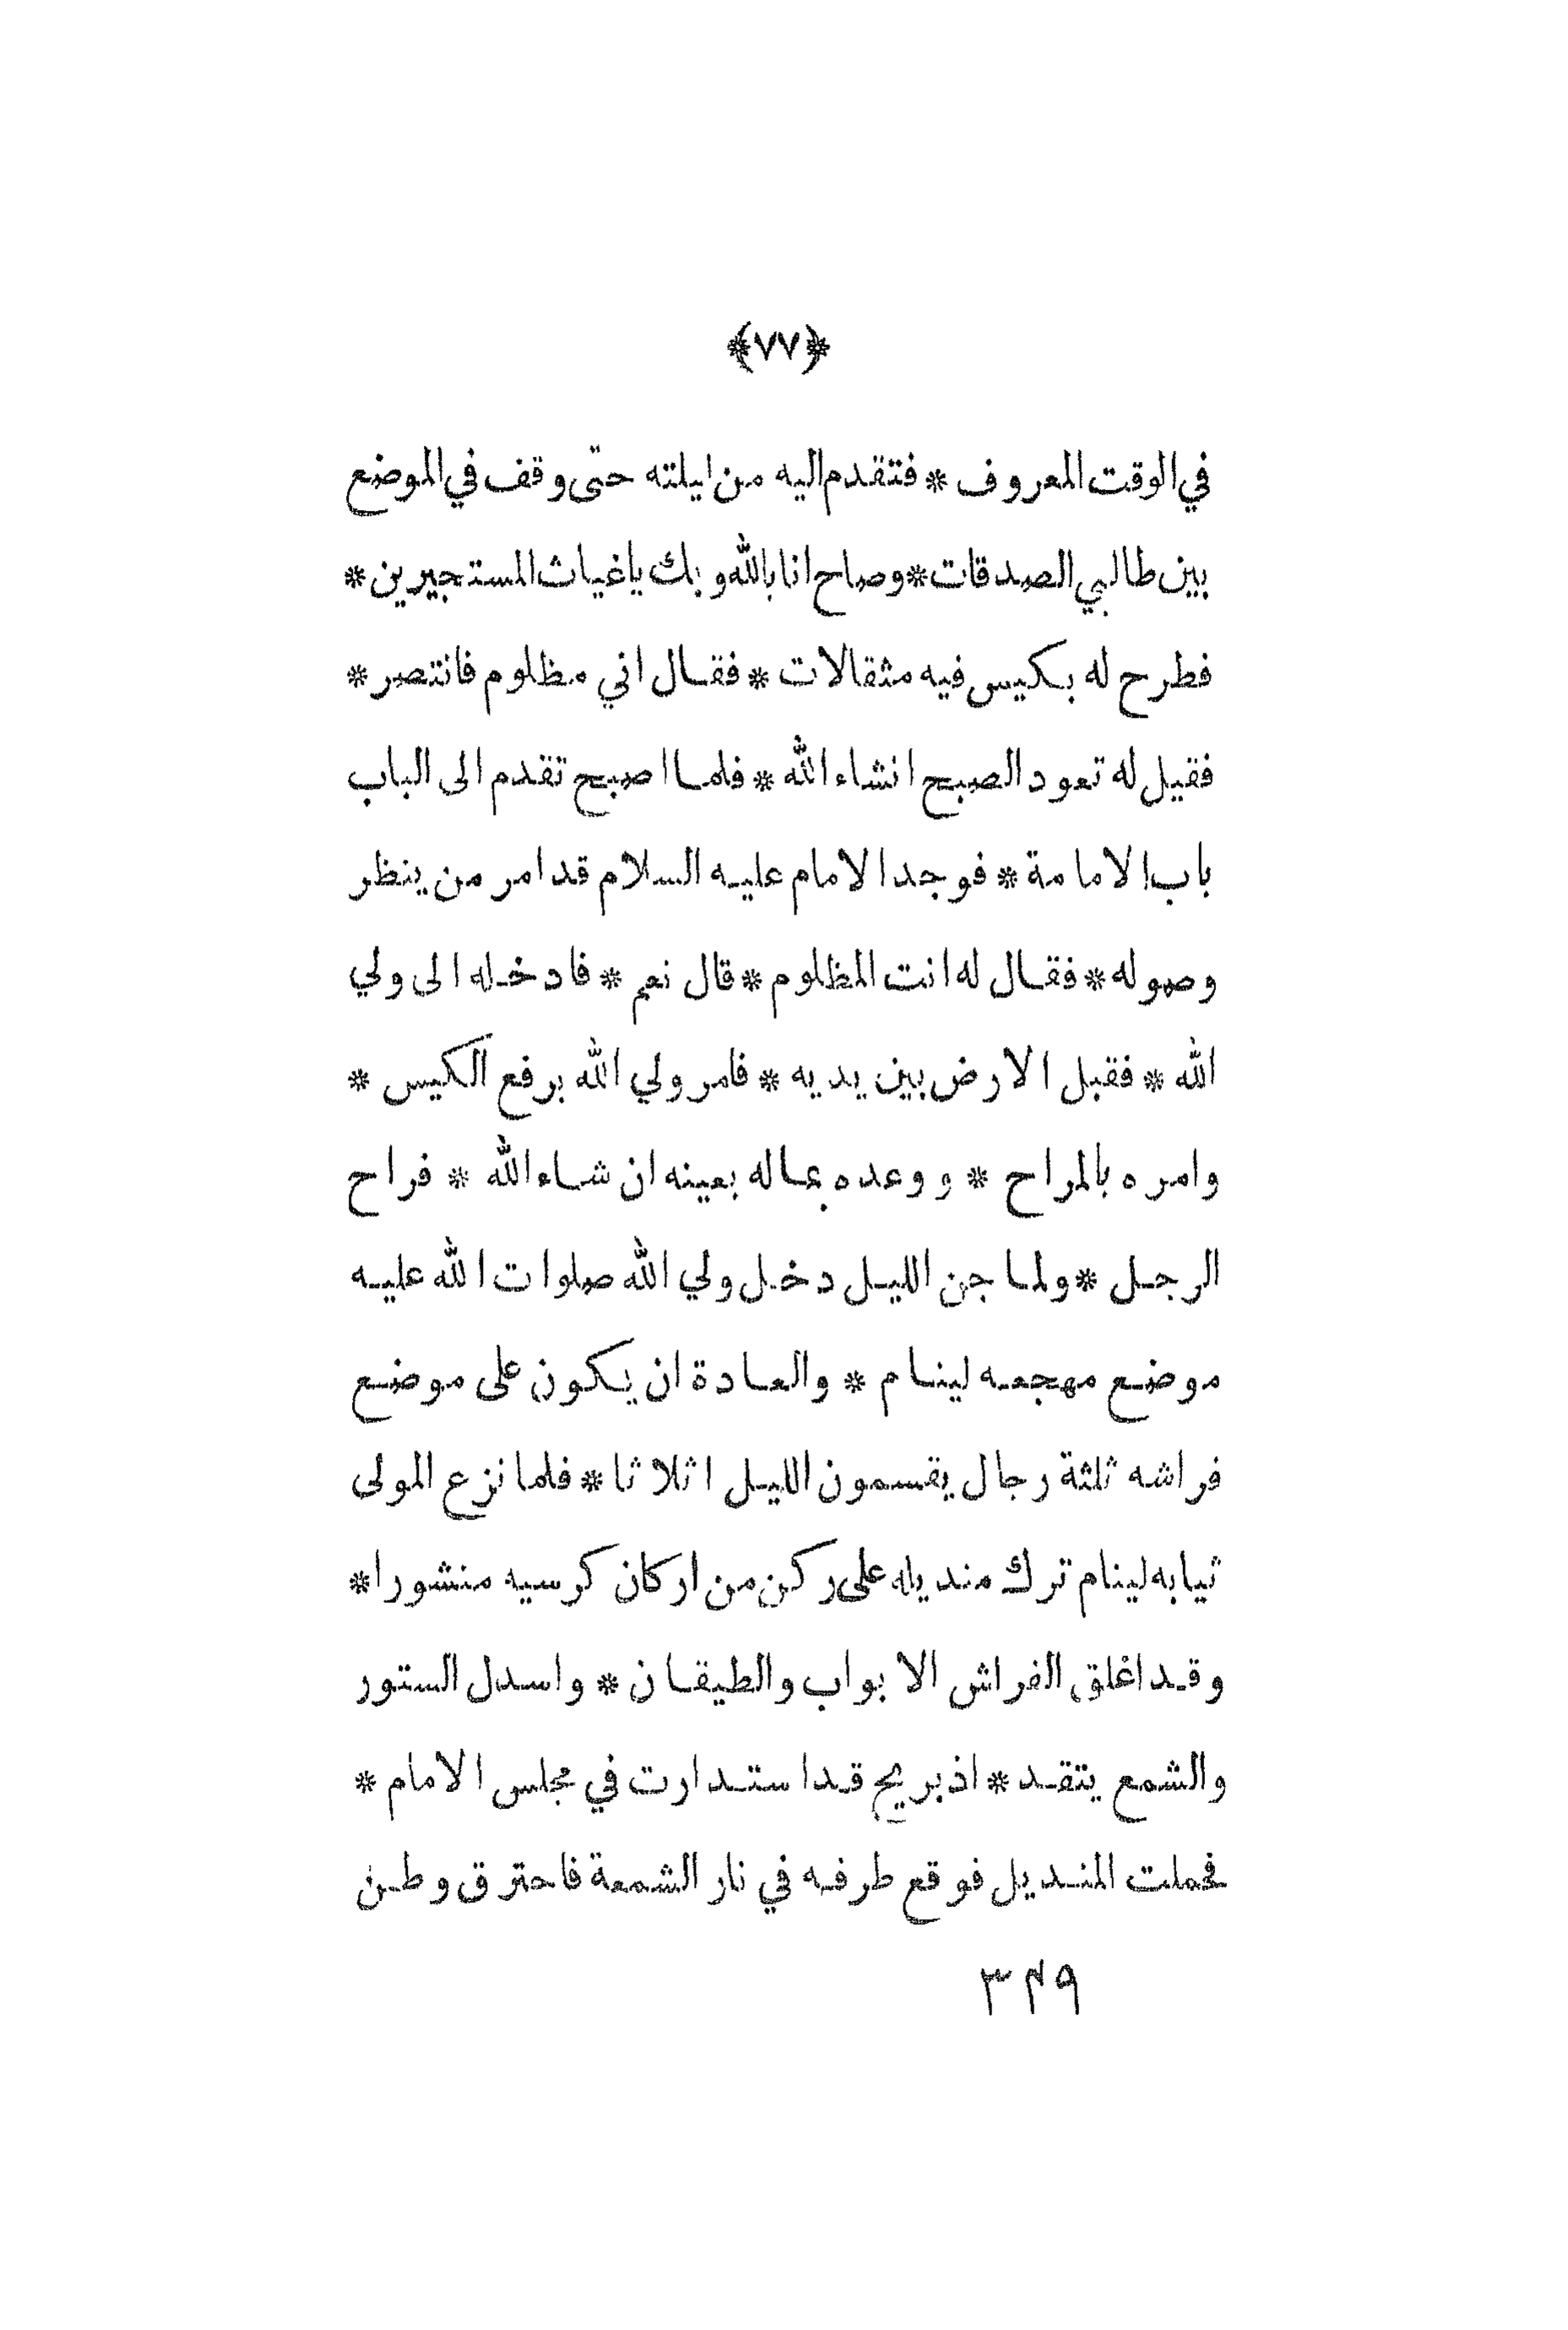 ﴿٧٧﴾
في الوقت المعروف * فتقدم اليه من ليلته حتّى وقف في الموضع
بين طالبي الصدقات * وصاح انا بالله وبك يا غياث المستجيرين *
فطرح له بكيس فيه مثقالات * فقال اني مظلوم فانتصر *
فقيل له تعود الصبح انشاء الله * فلما اصبح تقدم الى الباب
باب الامامة * فوجد الامام عليه السلام قد امر من ينظر
وصوله * فقال له انت المظلوم * قال نعم * فادخله الى ولي
الله * فقبل الارض بين يديه * فامر ولي الله برفع الكيس *
وامره بالمراح * ووعده بماله بعينه ان شاء الله * فراح
الرجل * ولما جن الليل دخل ولي الله صلوات الله عليه
موضع مهجعه لينام * والعادة ان يكون على موضع
فراشه ثلثة رجال يقسمون الليل اثلاثا * فلما نزع المولى
ثيابه لينام ترك منديله على ركن من اركان كرسيه منشورا *
وقد اغلق الفراش الابواب والطيقان * واسدل الستور
والشمع يتقد * اذ بريح قد استدارت في مجلس الامام *
فحملت المنديل فوقع طرفه في نار الشمعة فاحترق وطن
٣٤٩